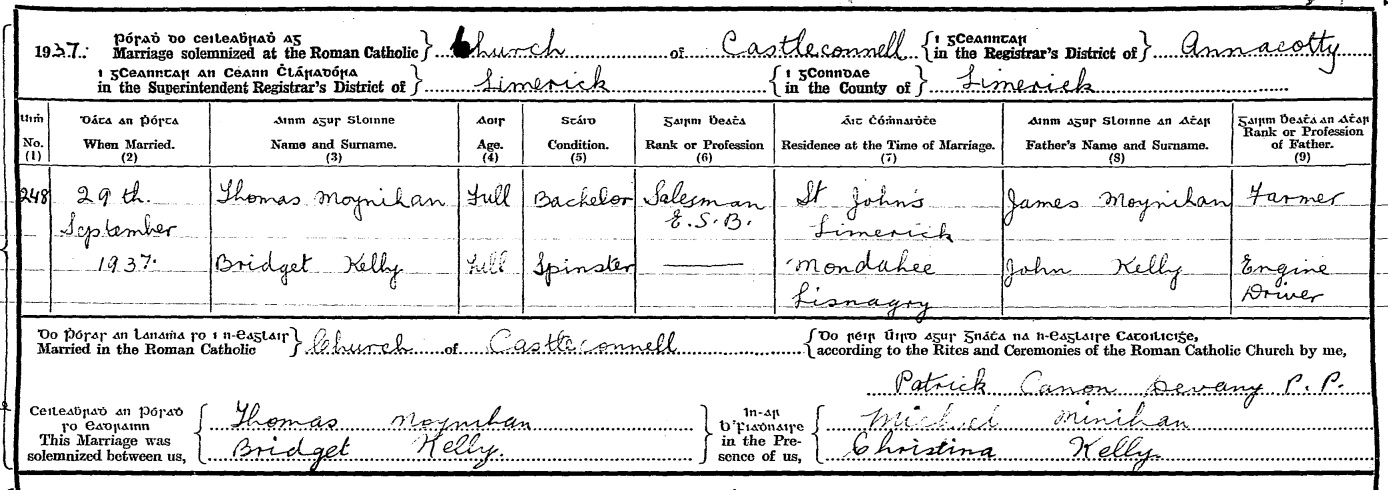 Pórað do ceileabrað ag i gCeanntar
1937. Marriage solemnized at the Roman Catholic Church of Castleconnell in the Registrar's District of Annacotty
i gCeanntar an Ceann Ċláraðóra i gConndae
in the Superintendent Registrar's District of Limerick in the County of Limerick
Uiṁ Dáta an Pórta Ainm agus Sloinne Aois Stáid Gairm Beaṫa Áit Ċóṁnaiḋṫe Ainm agus Sloinne an Aṫar Gairm Beaṫa an Aṫar
No. When Married. Name and Surname. Age. Condition. Rank or Profession Residence at the Time of Marriage. Father's Name and Surname. Rank or Profession of Father.
(1) (2) (3) (4) (5) (6) (7) (8) (9)
248 29th. Thomas Moynihan Full Bachelor Salesman St John's James Moynihan Farmer
September E.S.B. Limerick
1937. Bridget Kelly Full Spinster Mondahee John Kelly Engine
Lisnagry Driver
Do Pórað an lanaṁa so i n-Eaglais Do réir Uird agus Gnáṫa na h-Eaglaise Catoilicíġe,
Married in the Roman Catholic Church of Castleconnell according to the Rites and Ceremonies of the Roman Catholic Church by me,
Patrick Canon Devany P.P.
Ceileabrað an Pórað Thomas Moynihan In-ar Michael Minihan
so eadrainn b'fiaðnaise
This Marriage was Bridget Kelly. in the Pre- Christina Kelly.
solemnized between us, sence of us,